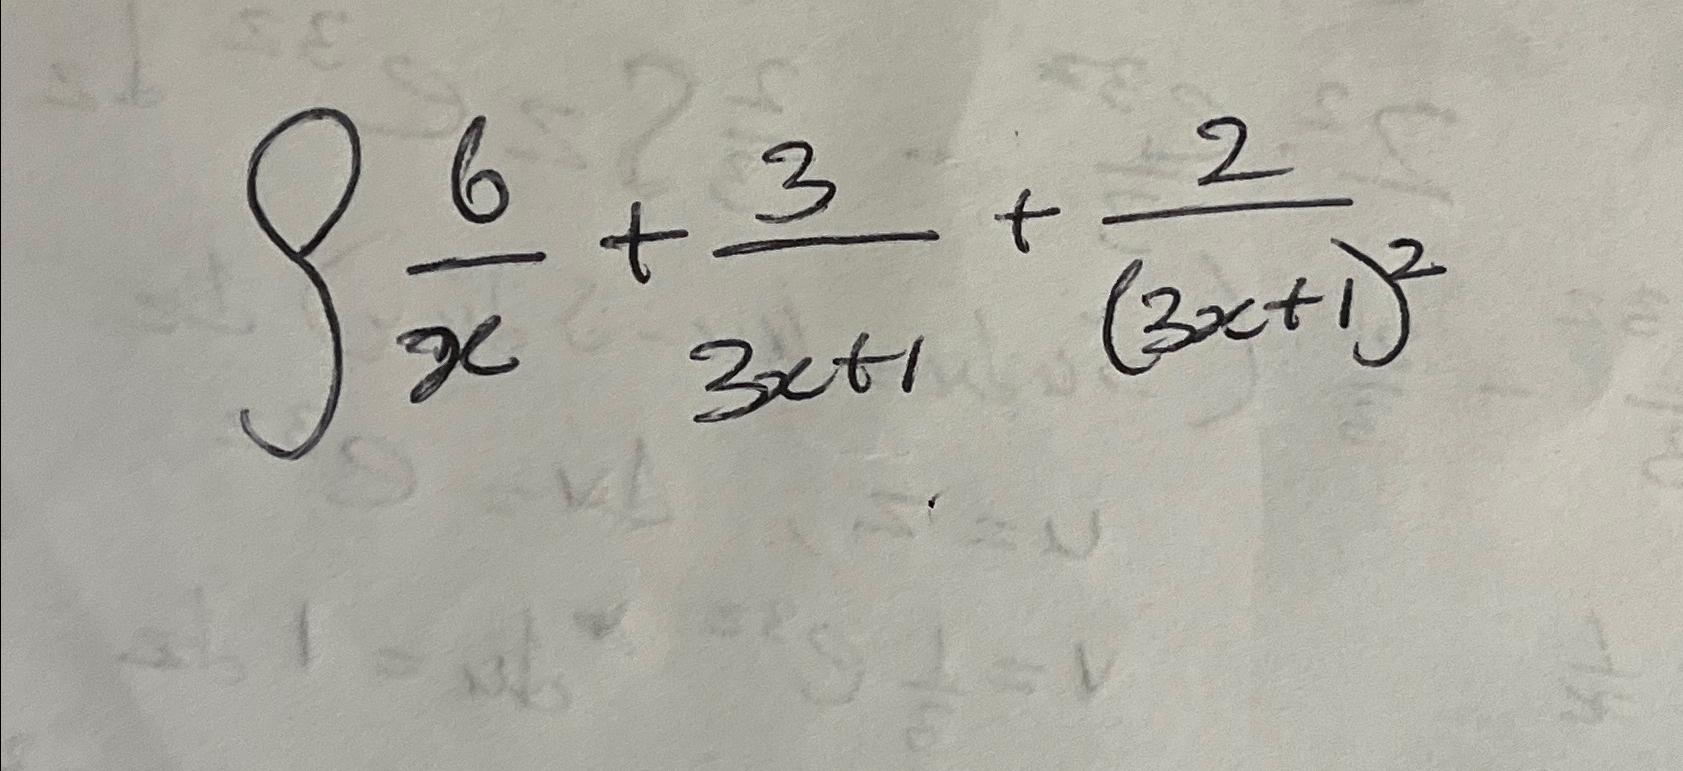 ∫ 6/x + 3/(3x+1) + 2/(3x+1)²